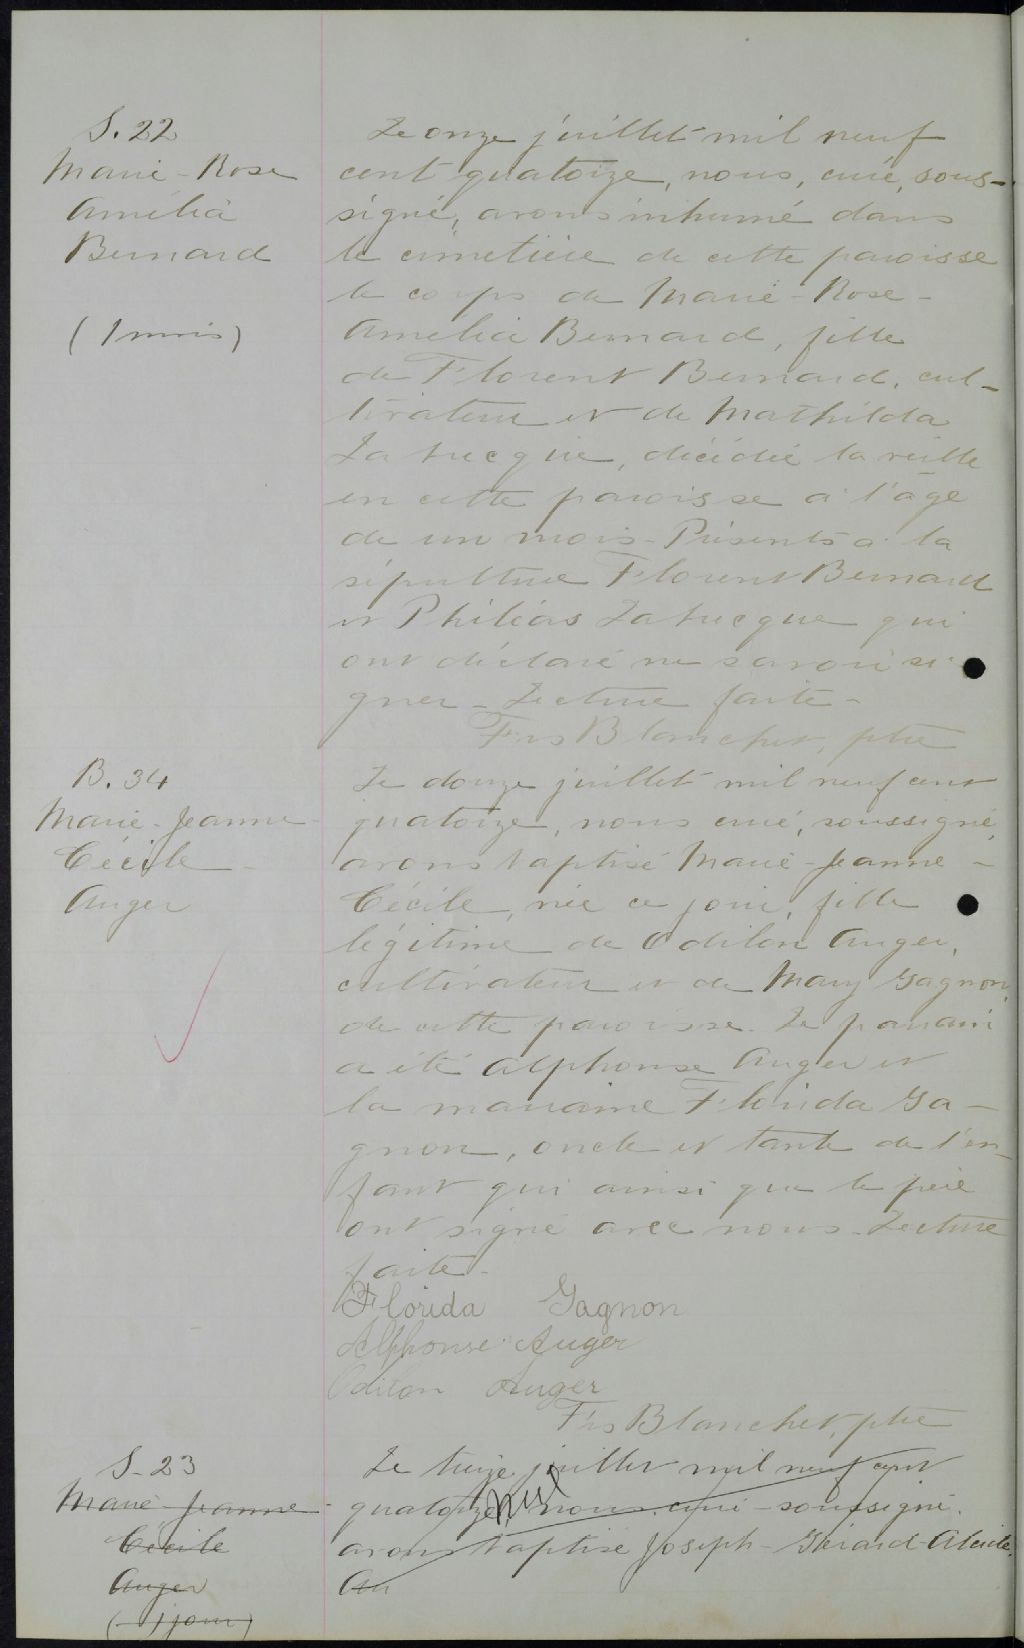 S. 22
Marie-Rose
Amélia
Bernard
(1 mois)
Le onze juillet mil neuf
cent quatorze, nous, curé, sous-
signé, avons inhumé dans
le cimetière de cette paroisse
le corps de Marie-Rose-
Amélia Bernard, fille
de Florent Bernard, cul-
tivateur et de Mathilda
décédée la veille
en cette paroisse à l'âge
de un mois. Présents à la
sépulture Florent Bernard
et Philéas qui
ont déclaré ne savoir si-
gner. Lecture faite.
Frs Blanchet, ptre
B. 34
Marie-Jeanne-
Cécile
Auger
Le douze juillet mil neuf cent
quatorze, nous curé, soussigné,
avons baptisé Marie-Jeanne-
Cécile, née ce jour, fille
légitime de Odilon Auger,
cultivateur et de Mary Gagnon,
de cette paroisse. Le parrain
a été Alphonse Auger et
la marraine Florida Ga-
gnon, oncle et tante de l'en-
fant qui ainsi que le père
ont signé avec nous. Lecture
faite.
Florida Gagnon
Alphonse Auger
Odilon Auger
Frs Blanchet, ptre
S. 23
Marie-Jeanne-
Cécile
Auger
(1 jour)
Le treize juillet mil neuf cent
quatorze, nul nous curé soussigné
avons baptisé Joseph-Gérard-Alcide
Au